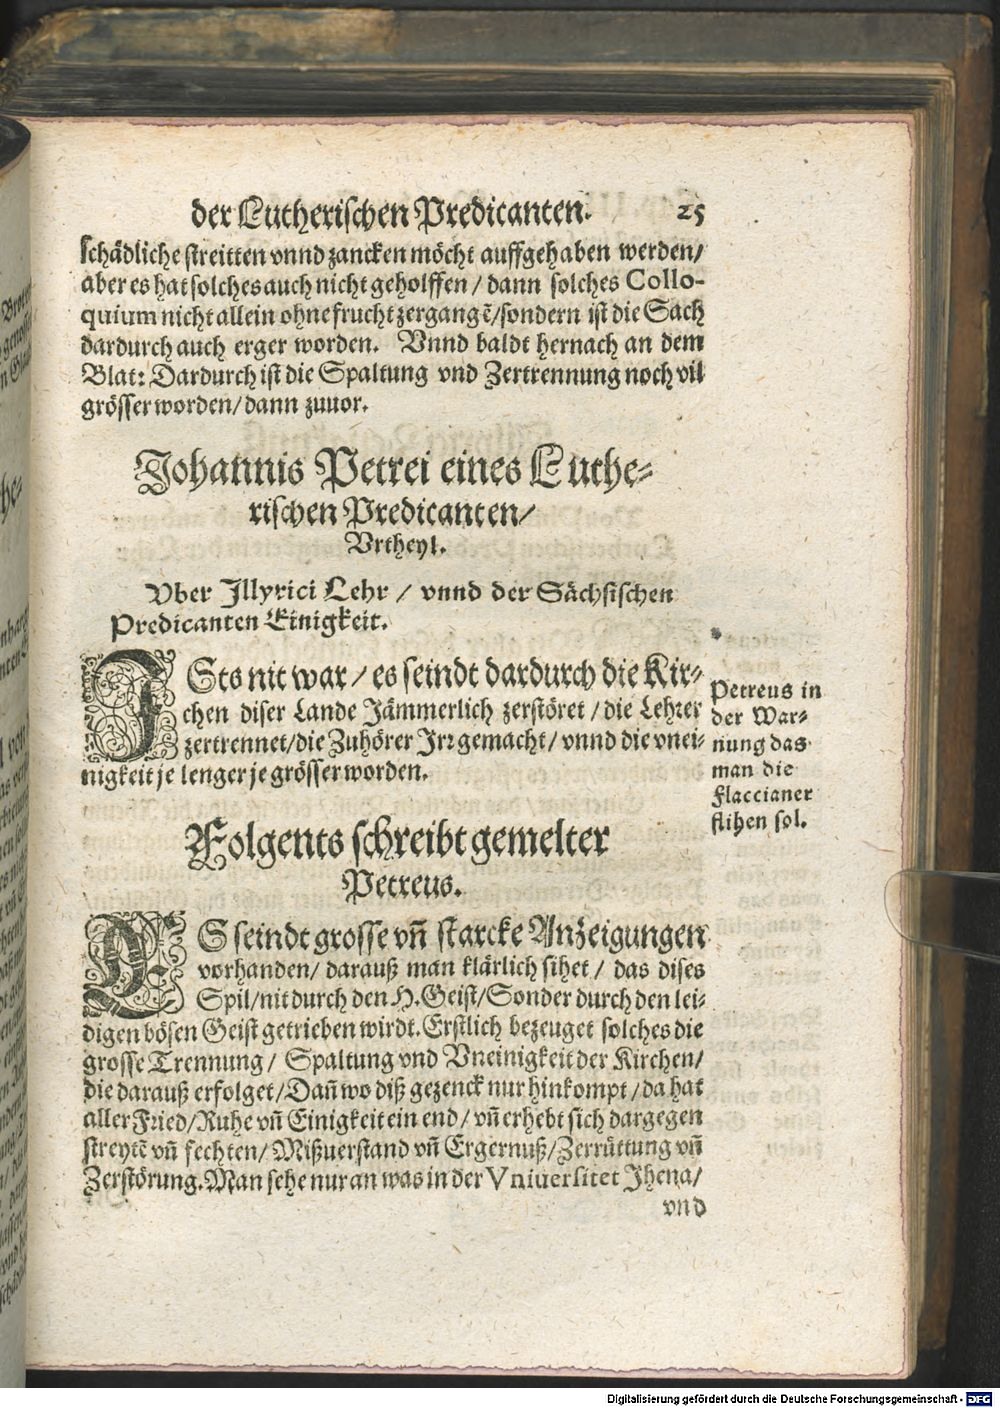 der Lutherischen Predicanten. 25
schädliche streitten vnnd zancken möcht auffgehaben werden/
aber es hat solches auch nicht geholffen / dann solches Collo-
quium nicht allein ohne frucht zergangẽ/sondern ist die Sach
dardurch auch erger worden. Vnnd baldt hernach an dem
Blat: Dardurch ist die Spaltung vnd Zertrennung noch vil
grösser worden/dann zuuor.
Johannis Petrei eines Luthe-
rischen Predicanten/
Vrtheyl.
Vber Illyrici Lehr / vnnd der Sächsischen
Predicanten Einigkeit.
ISts nit war / es seindt dardurch die Kir-
chen diser Lande Jämmerlich zerstöret / die Lehrer
zertrennet/die Zuhörer Irr gemacht / vnnd die vnei-
nigkeit je lenger je grösser worden.
Petreus in
der War-
nung das
man die
Flaccianer
flihen sol.
Folgents schreibt gemelter
Petreus.
ES seindt grosse vñ starcke Anzeigungen
vorhanden/ darauß man klärlich sihet / das dises
Spil/nit durch den H. Geist/Sonder durch den lei-
digen bösen Geist getrieben wirdt. Erstlich bezeuget solches die
grosse Trennung / Spaltung vnd Vneinigkeit der Kirchen/
die darauß erfolget/Dañ wo diß gezenck nur hinkompt / da hat
aller Fried/Ruhe vñ Einigkeit ein end / vñ erhebt sich dargegen
streytẽ vñ fechten/ Mißuerstand vñ Ergernuß/Zerrüttung vñ
Zerstörung. Man sehe nur an was in der Vniuersitet Jhena/
vnd
Digitalisierung gefördert durch die Deutsche Forschungsgemeinschaft - DFG